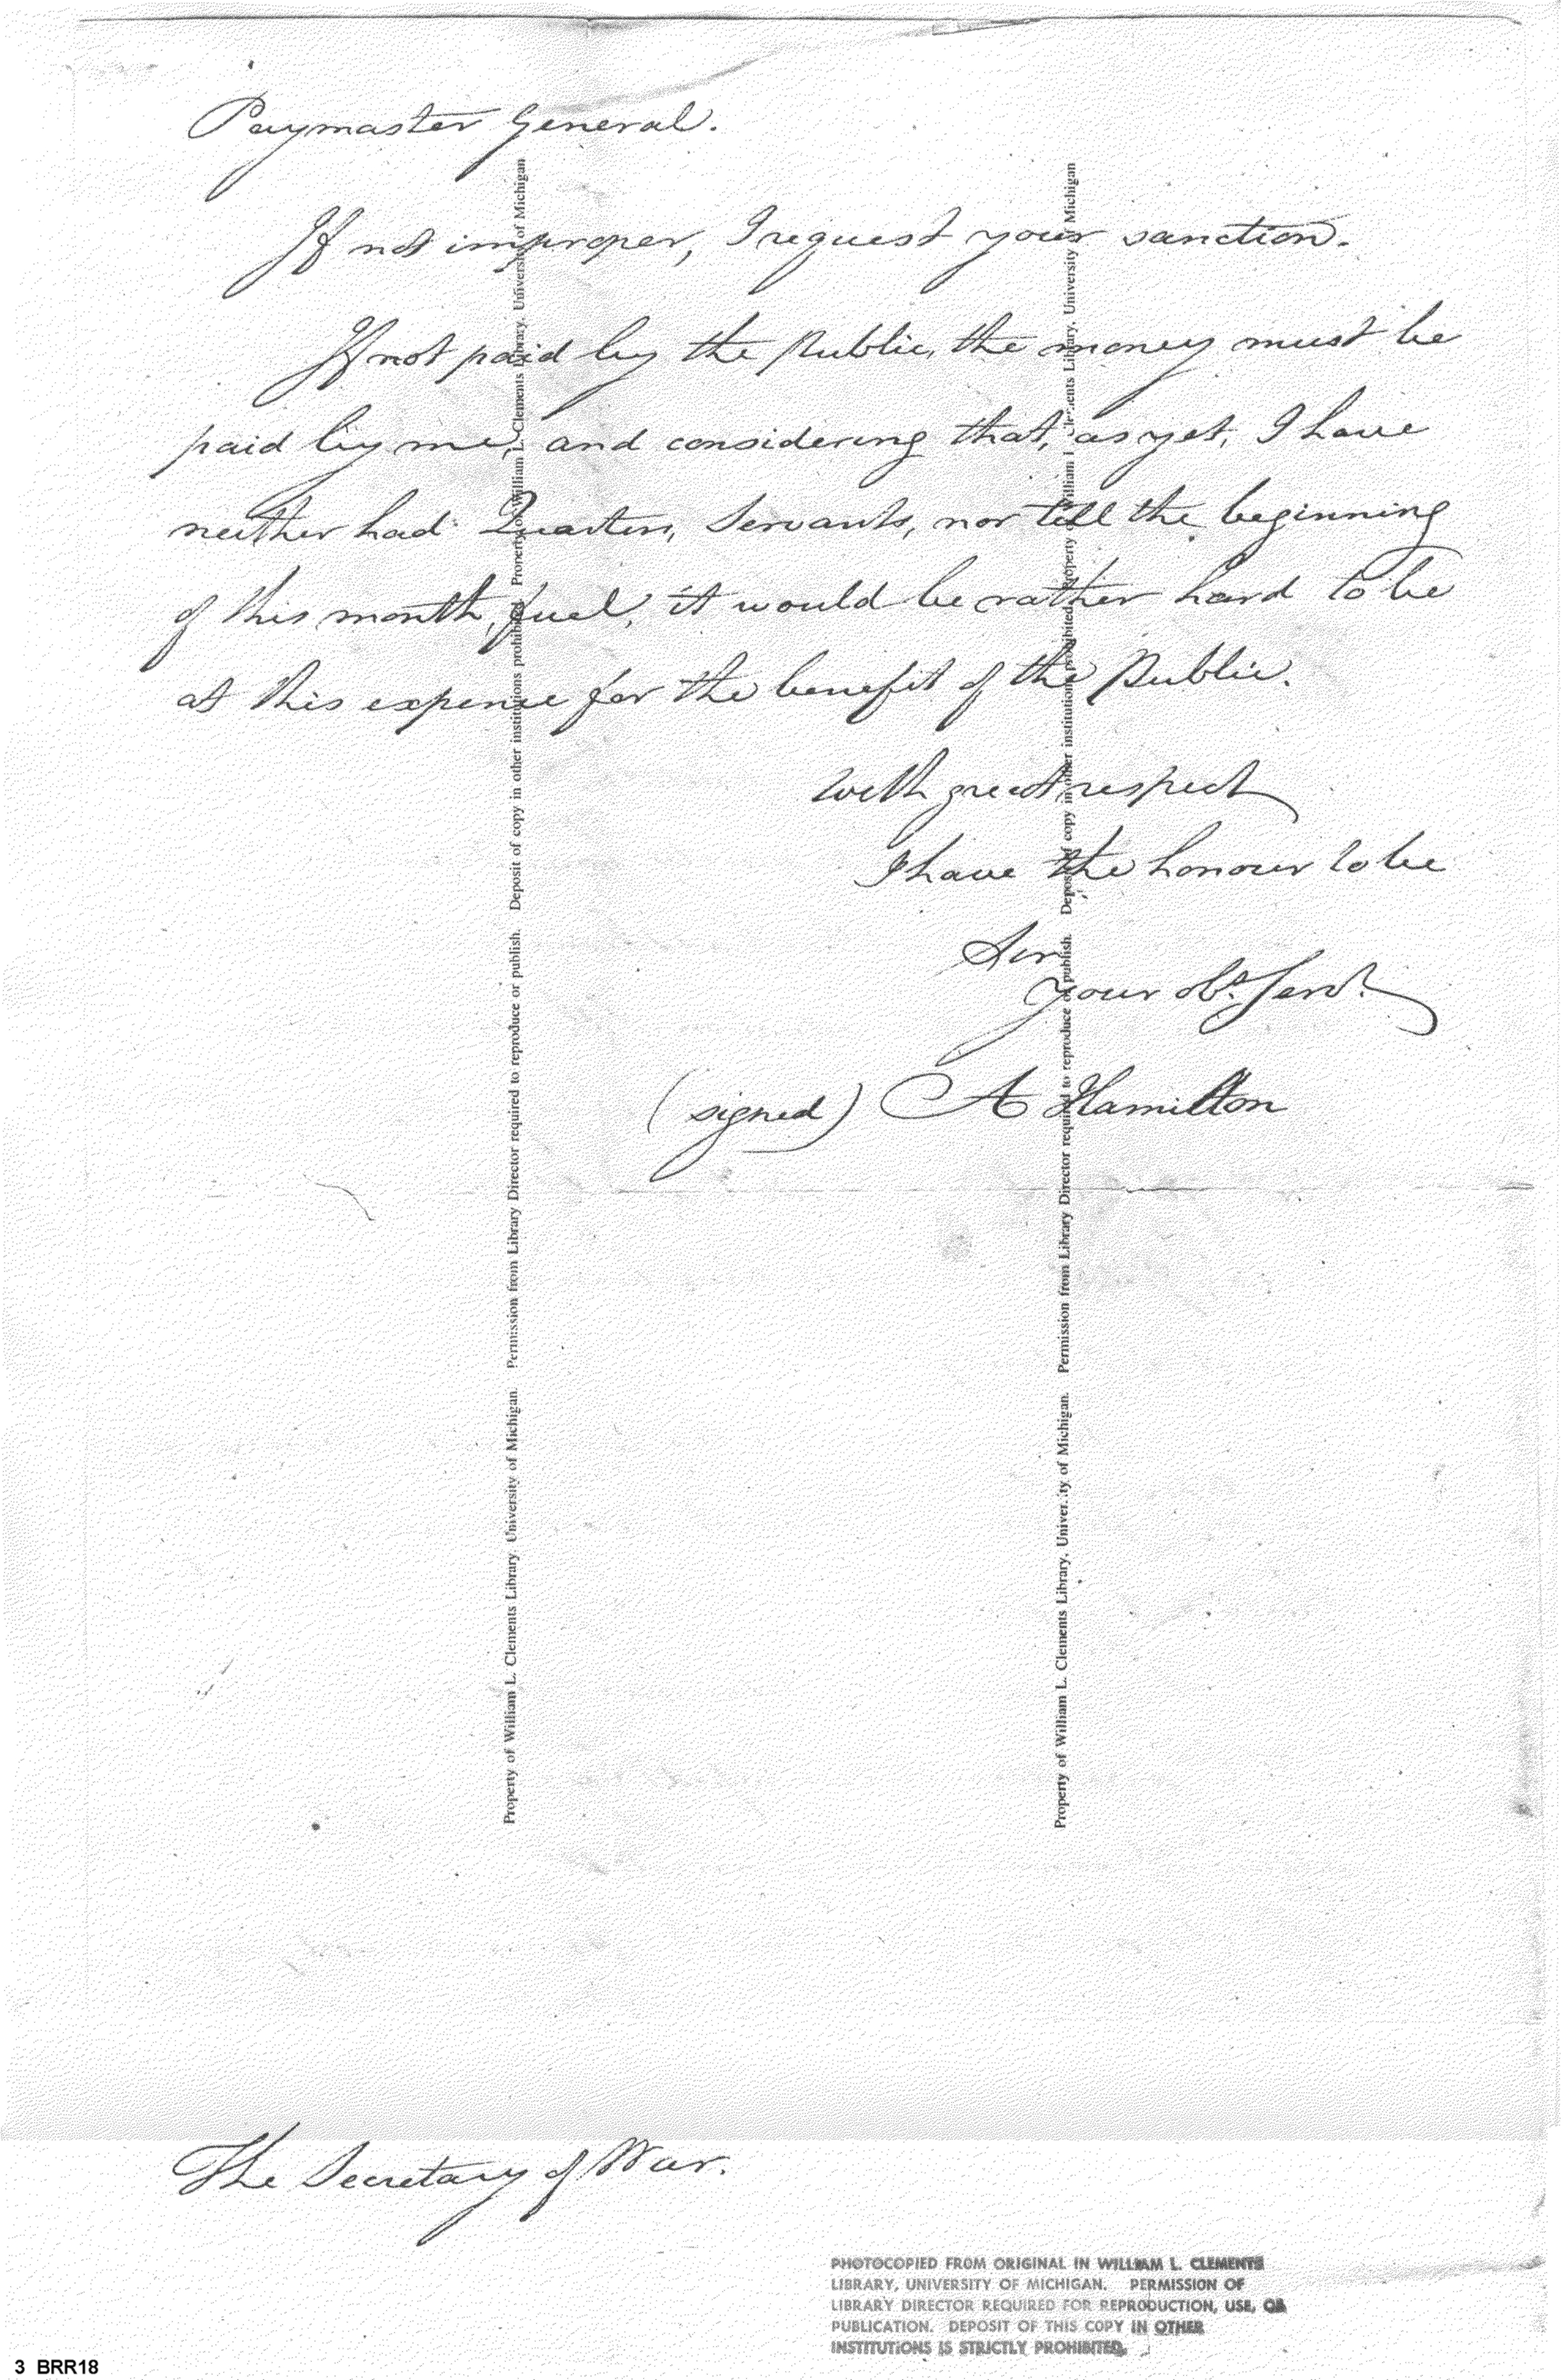 Paymaster General.
If not improper, I request your sanction.
If not paid by the Public, the money must be
paid by me, and considering that, as yet, I have
neither had Quarters, Servants, nor till the beginning
of this month, fuel, it would be rather hard to be
at this expence for the benefit of the Public.
With great respect
I have the honour to be
Sir
your obt. Servt.
(signed) A Hamilton
The Secretary of War.
Property of William L. Clements Library, University of Michigan. Permission from Library Director required to reproduce or publish. Deposit of copy in other institutions prohibited. Property of William L. Clements Library, University of Michigan
Property of William L. Clements Library, University of Michigan. Permission from Library Director required to reproduce or publish. Deposit of copy in other institutions prohibited. Property of William L. Clements Library, University of Michigan
PHOTOCOPIED FROM ORIGINAL IN WILLIAM L. CLEMENTS
LIBRARY, UNIVERSITY OF MICHIGAN. PERMISSION OF
LIBRARY DIRECTOR REQUIRED FOR REPRODUCTION, USE, OR
PUBLICATION. DEPOSIT OF THIS COPY IN OTHER
INSTITUTIONS IS STRICTLY PROHIBITED.
3 BRR18